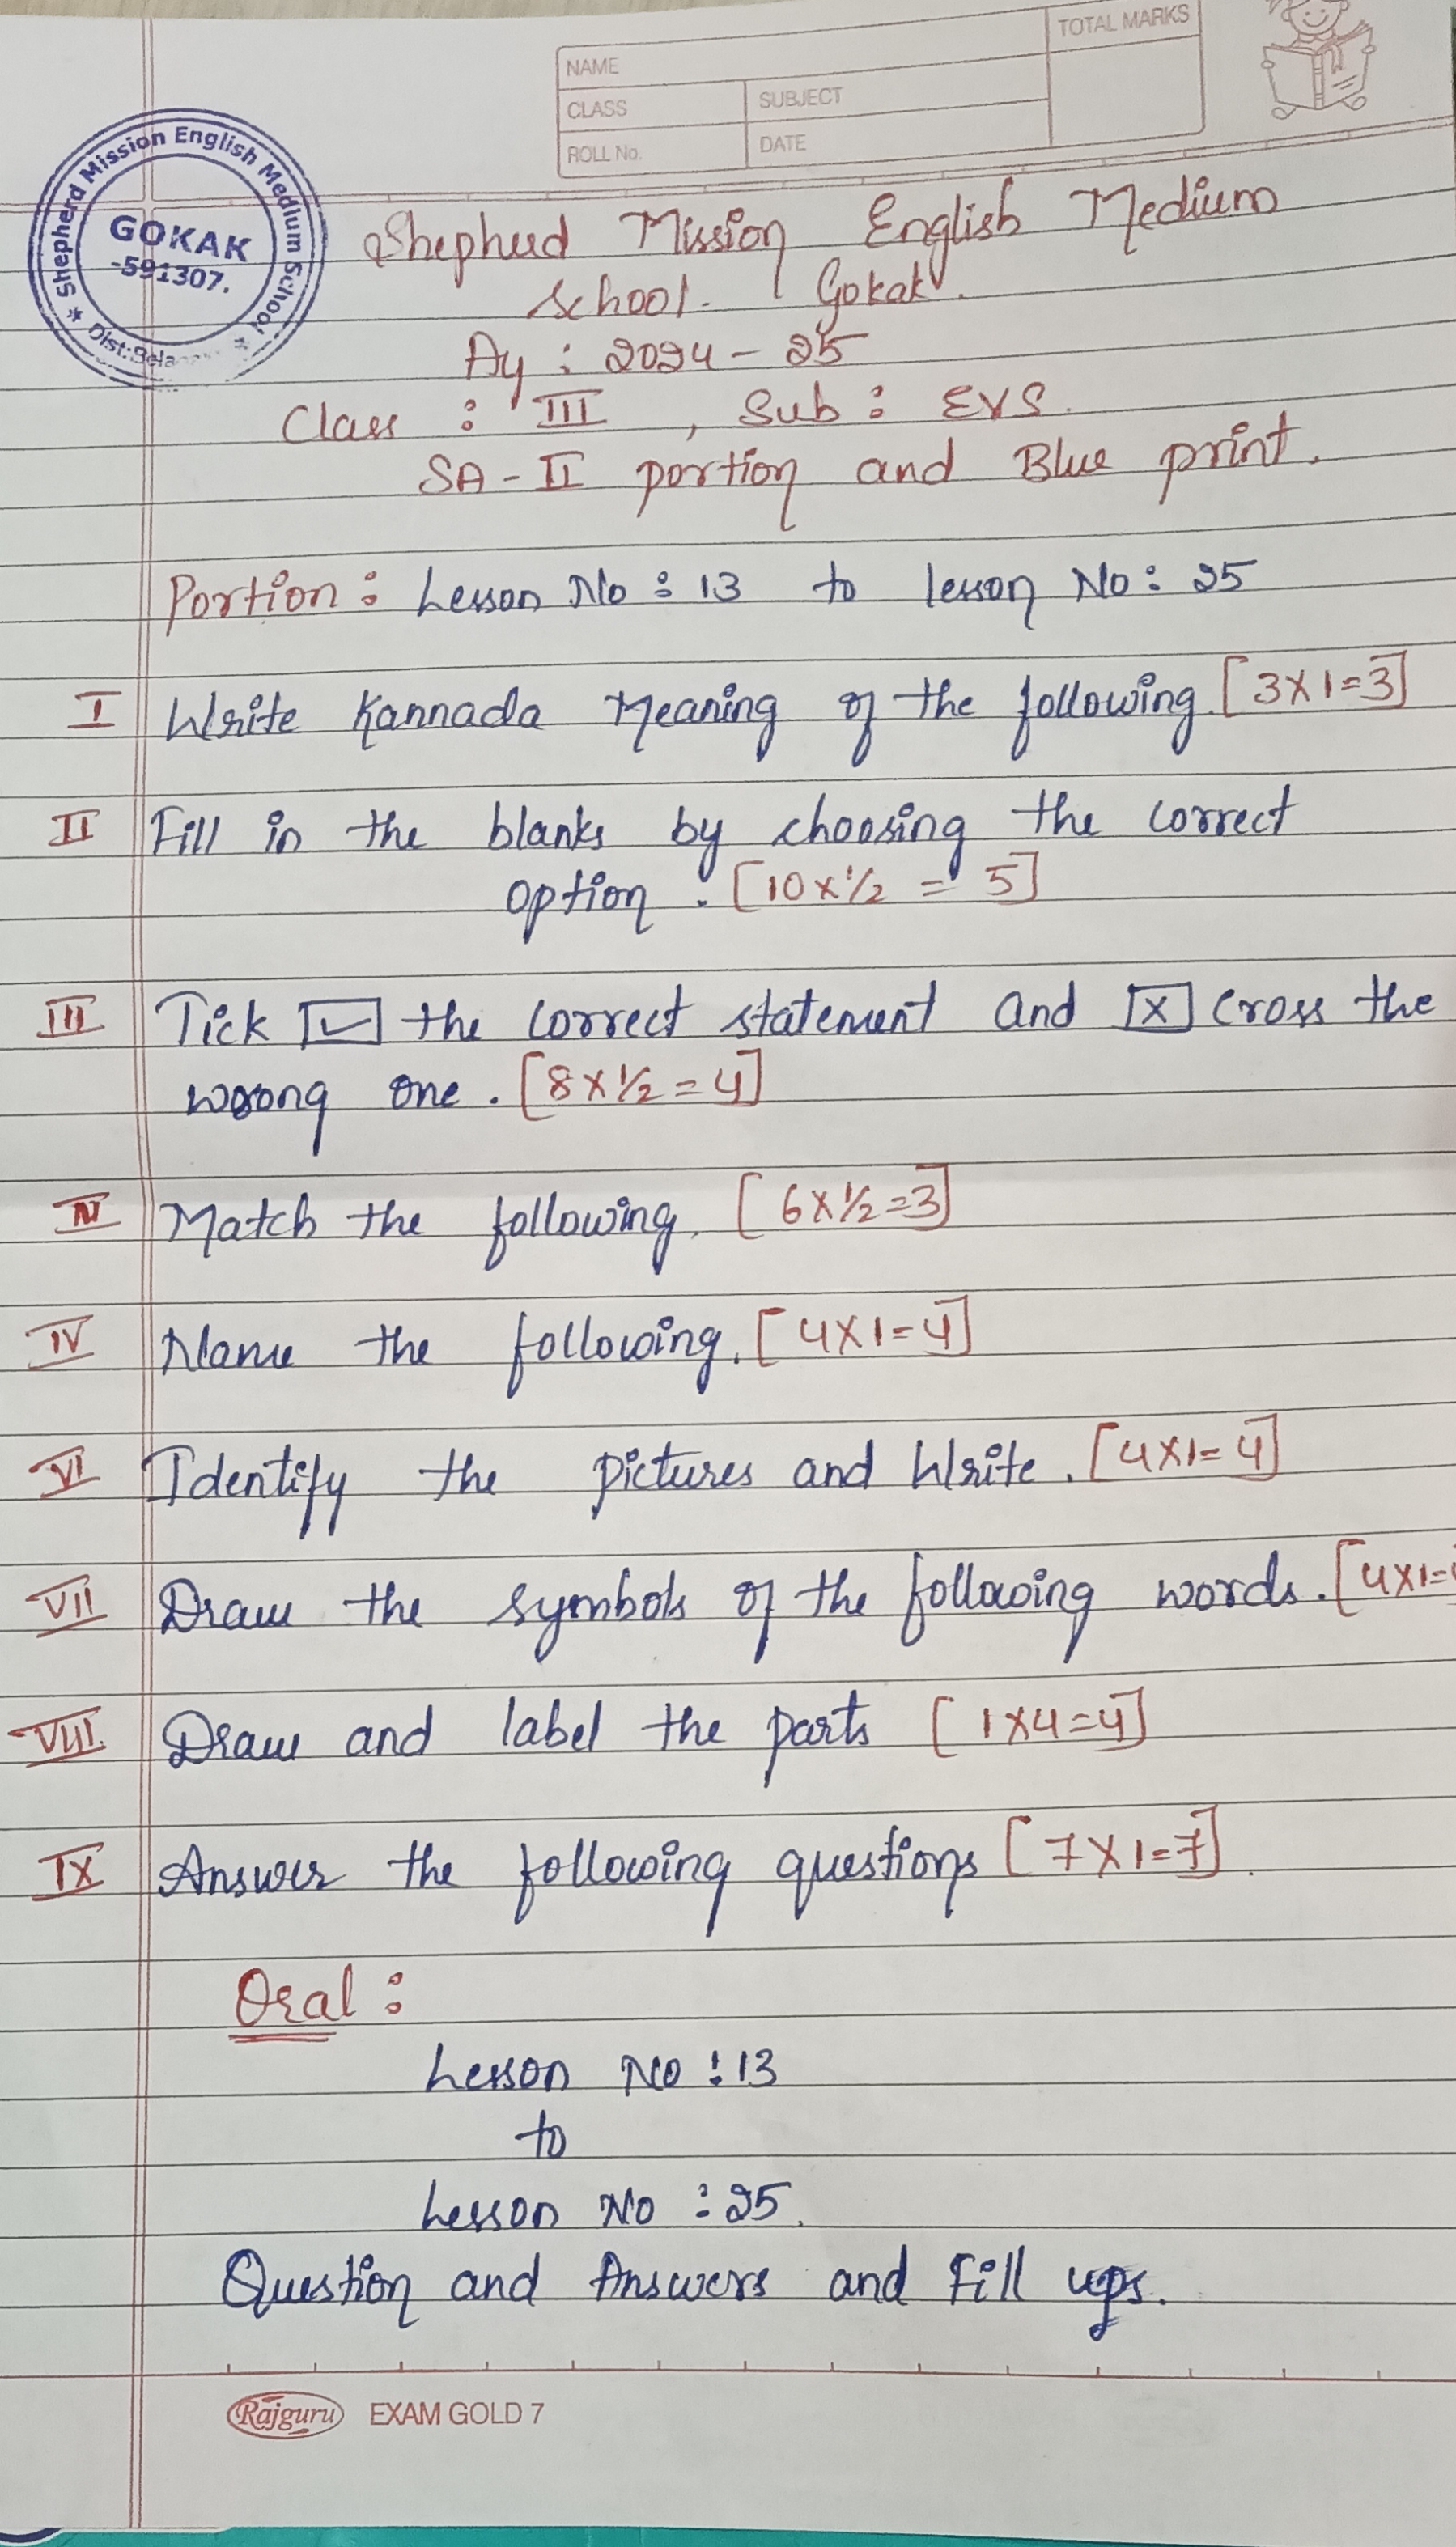 NAME
TOTAL MARKS
CLASS
SUBJECT
ROLL No.
DATE
Shepherd Mission English Medium School
GOKAK
-591307.
Shepherd Mission English Medium
School. Gokak.
Ay : 2024 - 25
Class : III , Sub : EVS.
SA - II portion and Blue print.
Portion : Lesson No : 13 to lesson No : 25
I Write Kannada Meaning of the following. [3X1=3]
II Fill in the blanks by choosing the correct
option. [10x1/2 = 5]
III Tick ☑ the correct statement and ☒ cross the
wrong one. [8x1/2=4]
IV Match the following. [6x1/2=3]
IV Name the following. [4X1=4]
VI Identify the pictures and Write. [4X1=4]
VII Draw the symbols of the following words. [4X1=
VIII. Draw and label the parts [1X4=4]
IX Answer the following questions [7X1=7].
Oral :
Lesson No : 13
to
Lesson No : 25.
Question and Answers and Fill ups.
Rajguru EXAM GOLD 7